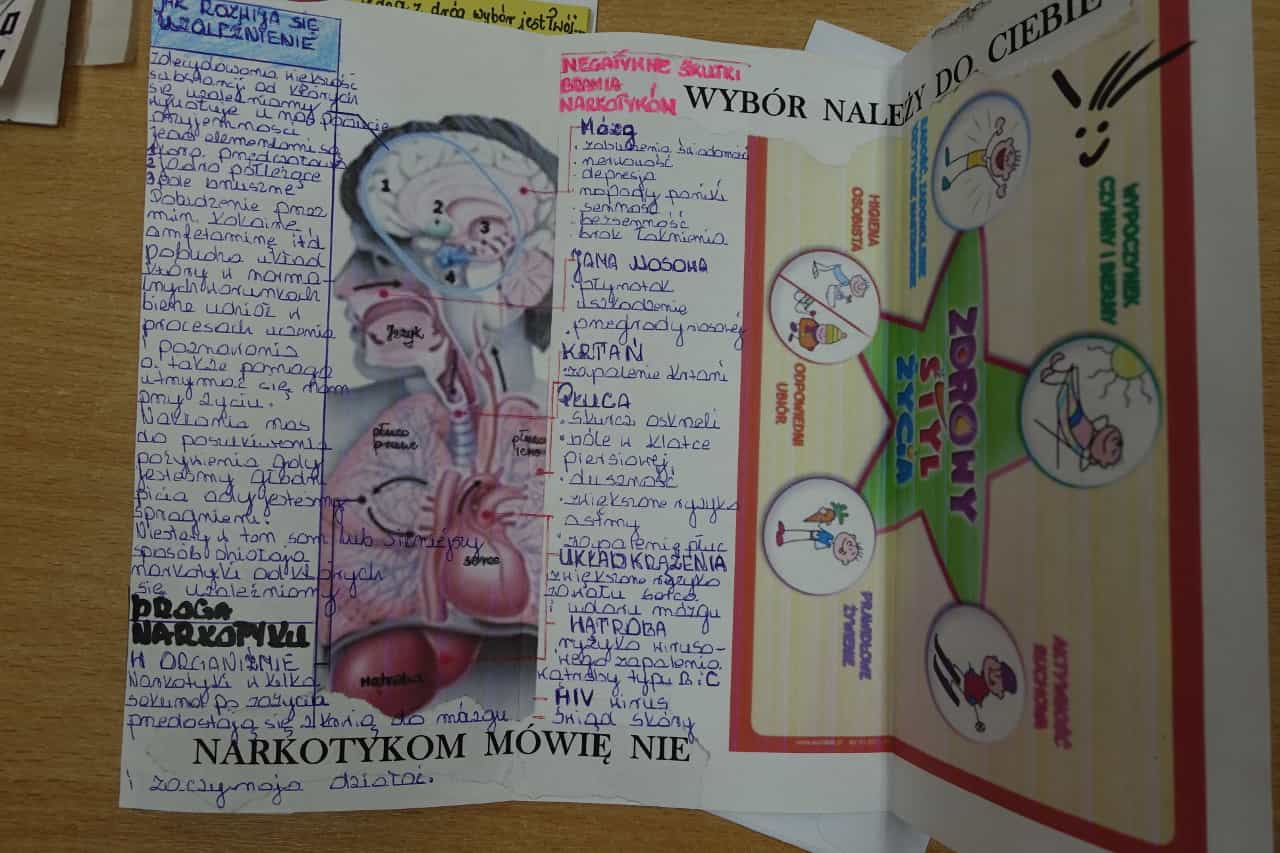 jedna z dróg wybór jest Twój...
JAK ROZWIJA SIĘ
UZALEŻNIENIE
Zdecydowana większość
substancji od których
się uzależniamy
wywołuje u nas poczucie
przyjemności
jego elementami są
1 korp. przedczołowa
2 jądro półleżące
3 pole brzuszne
Pobudzenie przez
min. kokainę,
amfetaminę itd
pobudza układ
który w norma-
lnych warunkach
bierze udział w
procesach uczenia
i poznawania
a także pomaga
utrzymać się nam
przy życiu.
Nakłania nas
do poszukiwania
pożywienia gdy
jesteśmy głodni
picia gdy jesteśmy
spragnieni.
Niestety w tam sam lub silniejszy
sposób działają
narkotyki od których
się uzależniamy
DROGA
NARKOTYKU
W ORGANIŹMIE
Narkotyki w kilka
sekund po zażyciu
przedostają się z krwią do mózgu
NARKOTYKOM MÓWIĘ NIE
i zaczynają działać.
1
2
3
4
Język
płuco
prawe
płuco
lewe
serce
Wątroba
NEGATYWNE SKUTKI
BRANIA
NARKOTYKÓW
Mózg
· zaburzenia świadomości
· nerwowość
· depresja
· napady paniki
· senność
· bezsenność
· brak łaknienia
JAMA NOSOWA
· uszkodzenie
przegrody nosowej
KRTAŃ
zapalenie krtani
PŁUCA
· skurcz oskrzeli
· bóle w klatce
piersiowej
· duszność
· zwiększone ryzyko
astmy
· zapalenie płuc
UKŁAD KRĄŻENIA
zwiększone ryzyko
zawału serca
i udaru mózgu
WĄTROBA
ryzyko wiruso-
wego zapalenia
wątroby typu B i C
HIV wirus
świąd skóry
WYBÓR NALEŻY DO CIEBIE
ZDROWY
STYL
ŻYCIA
HIGIENA
OSOBISTA
ODPOWIEDNI
UBIÓR
WYPOCZYNEK
CZYNNY I BIERNY
PRAWIDŁOWE
ŻYWIENIE
AKTYWNOŚĆ
RUCHOWA